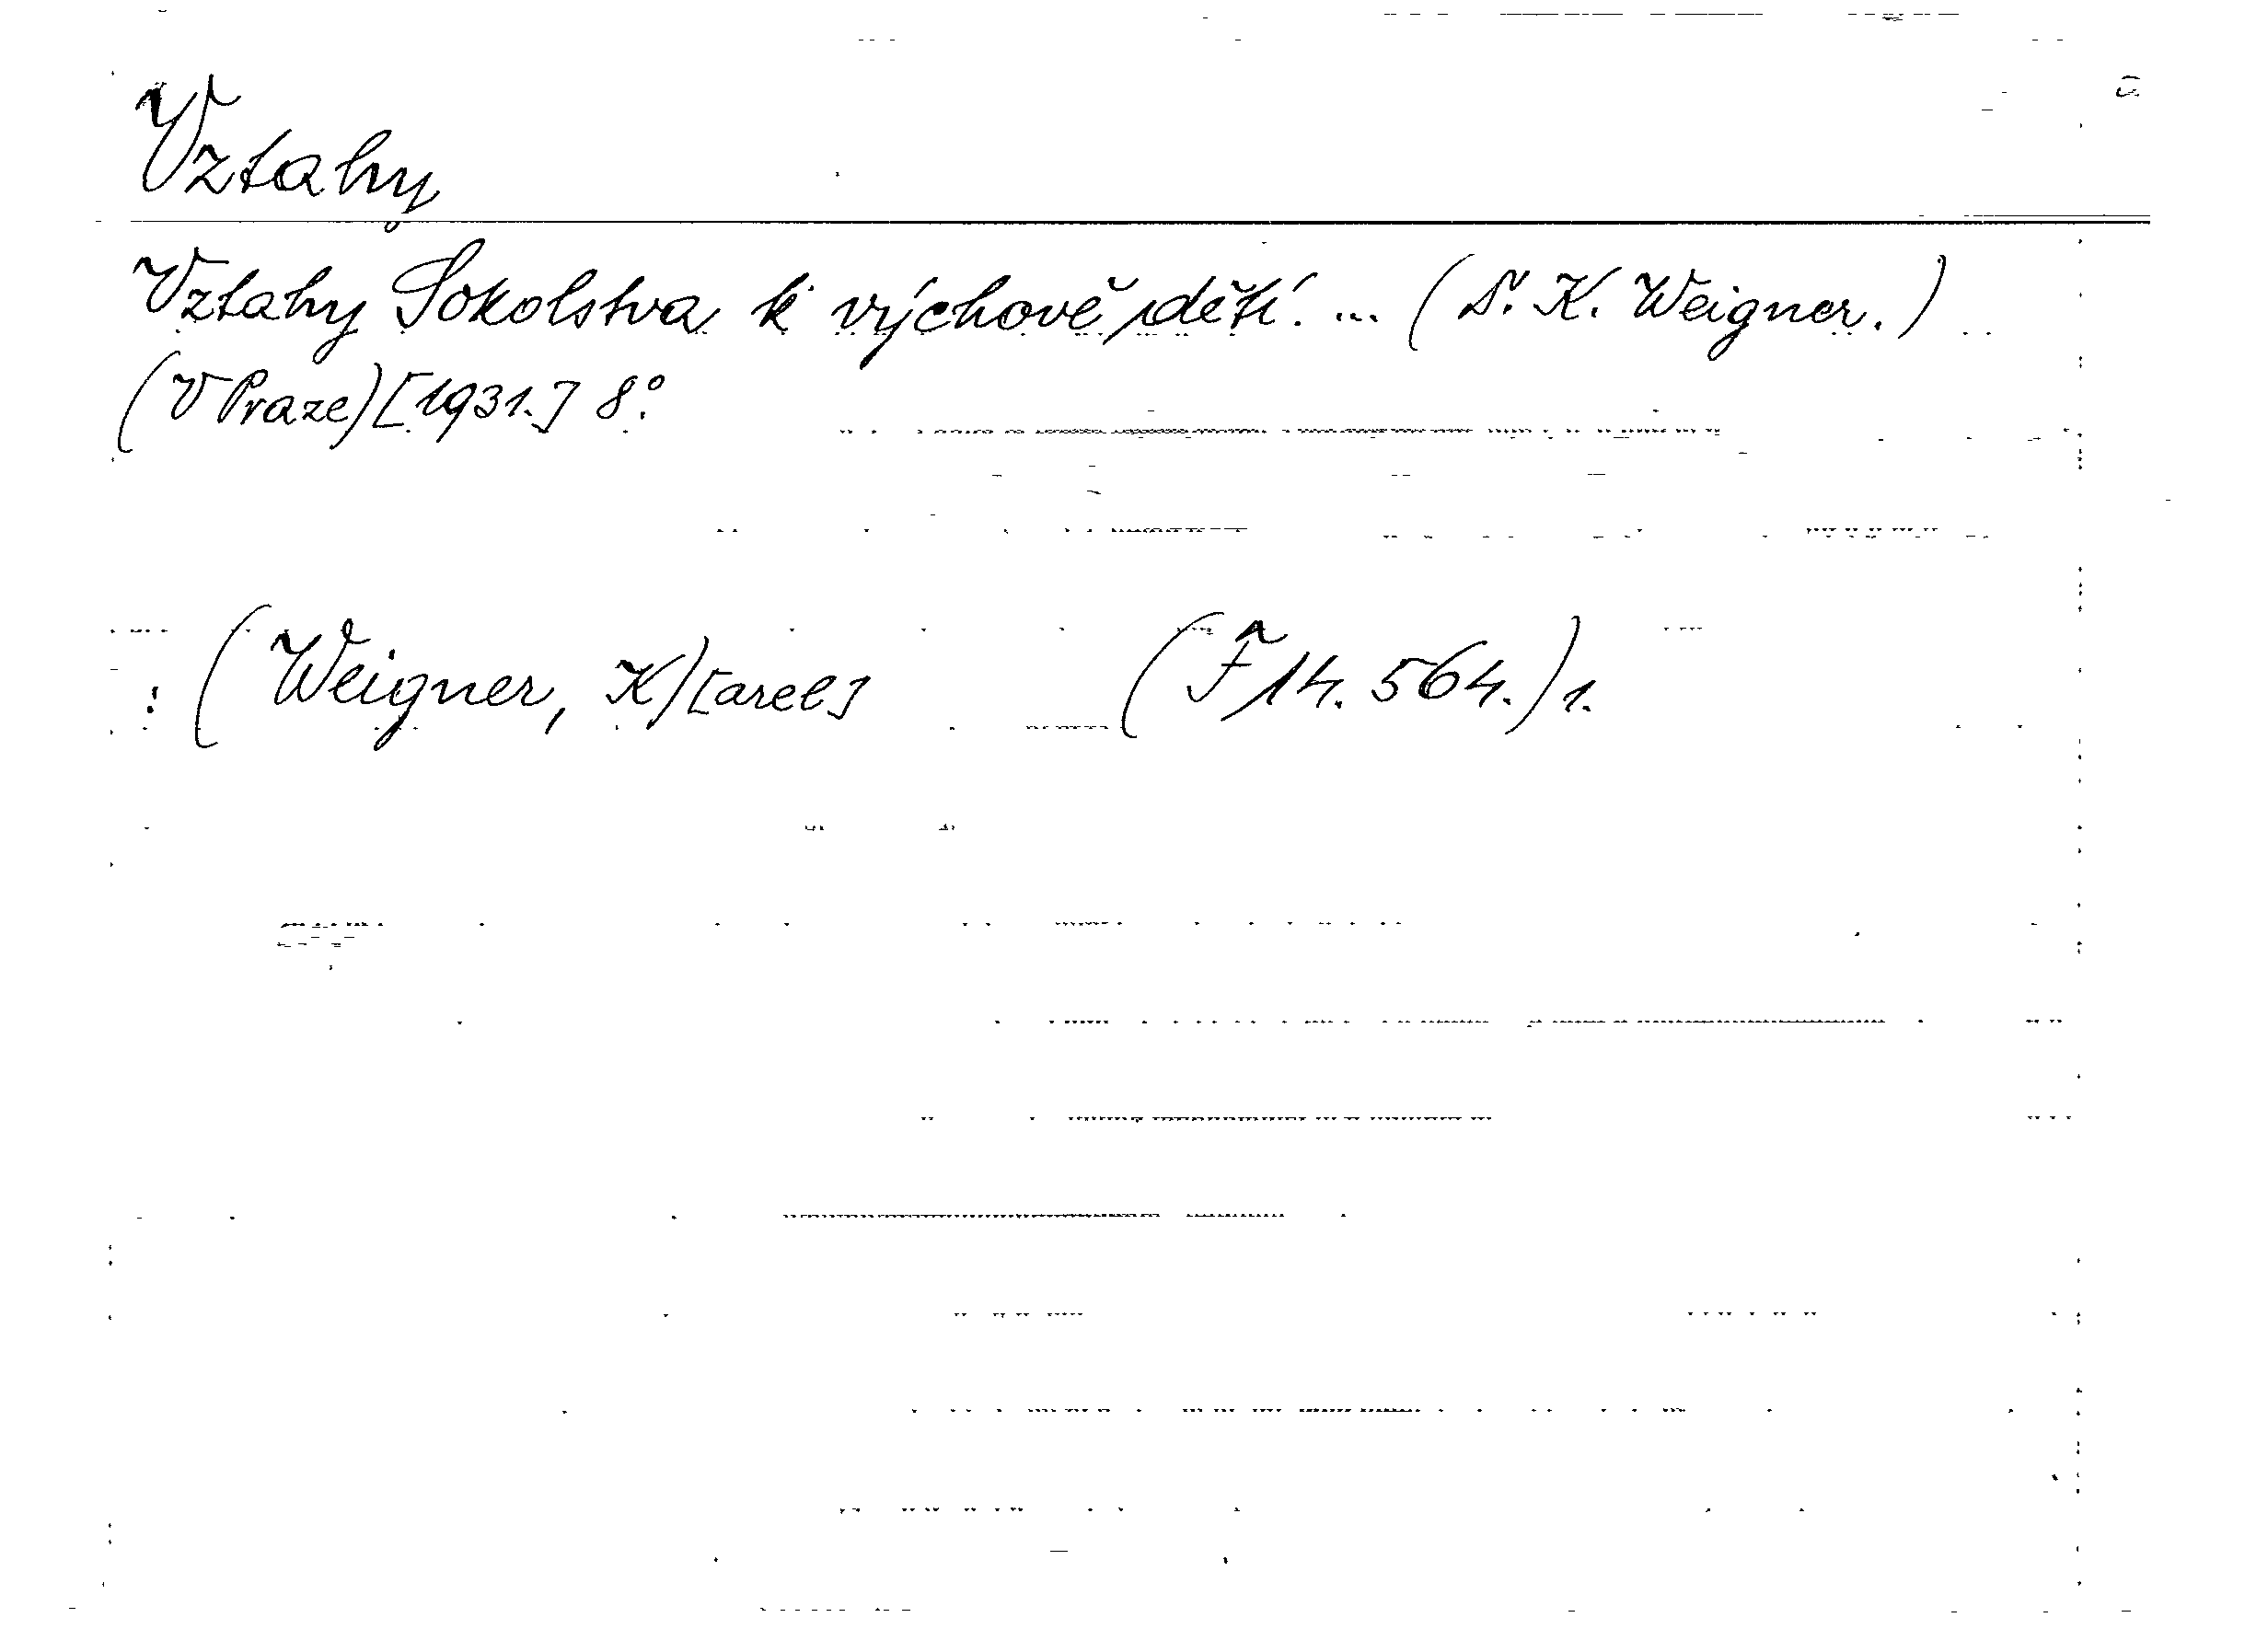 Vztahy
Vztahy Sokolstva k výchově dětí. ... (Dr. K. Weigner.)
(V Praze) [1931.] 8°.
: (Weigner, K)[arel] (F 14.564.) 1.